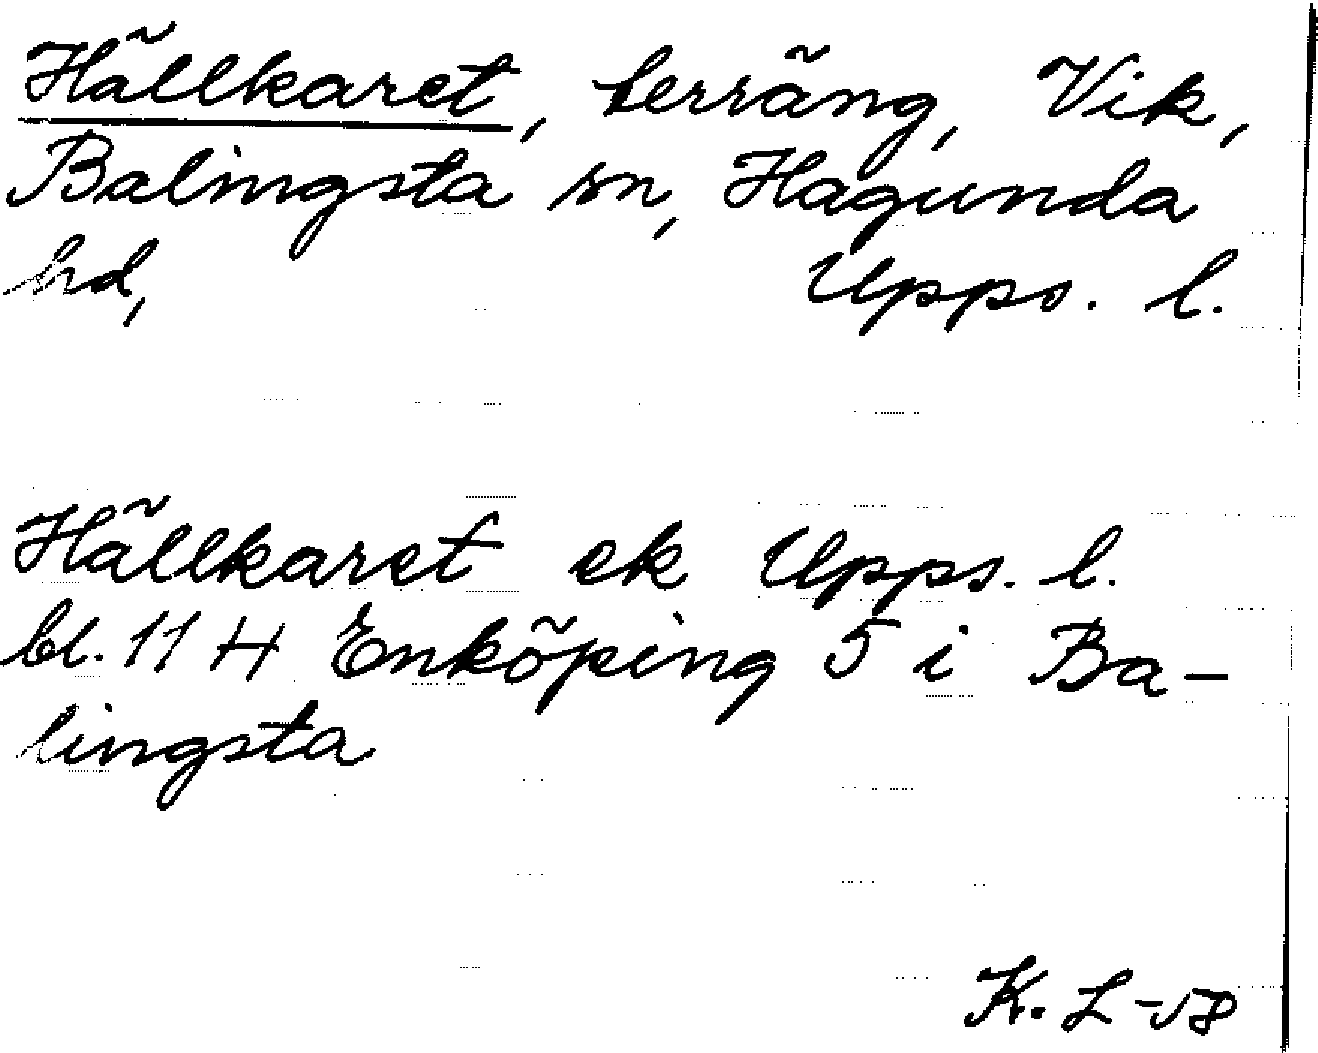 Hällkaret, terräng, Vik,
Balingsta sn, Hagunda
hd, Upps. l.
Hällkaret ek Upps. l.
bl. 11 H Enköping 5 i Ba-
lingsta
K. L -58